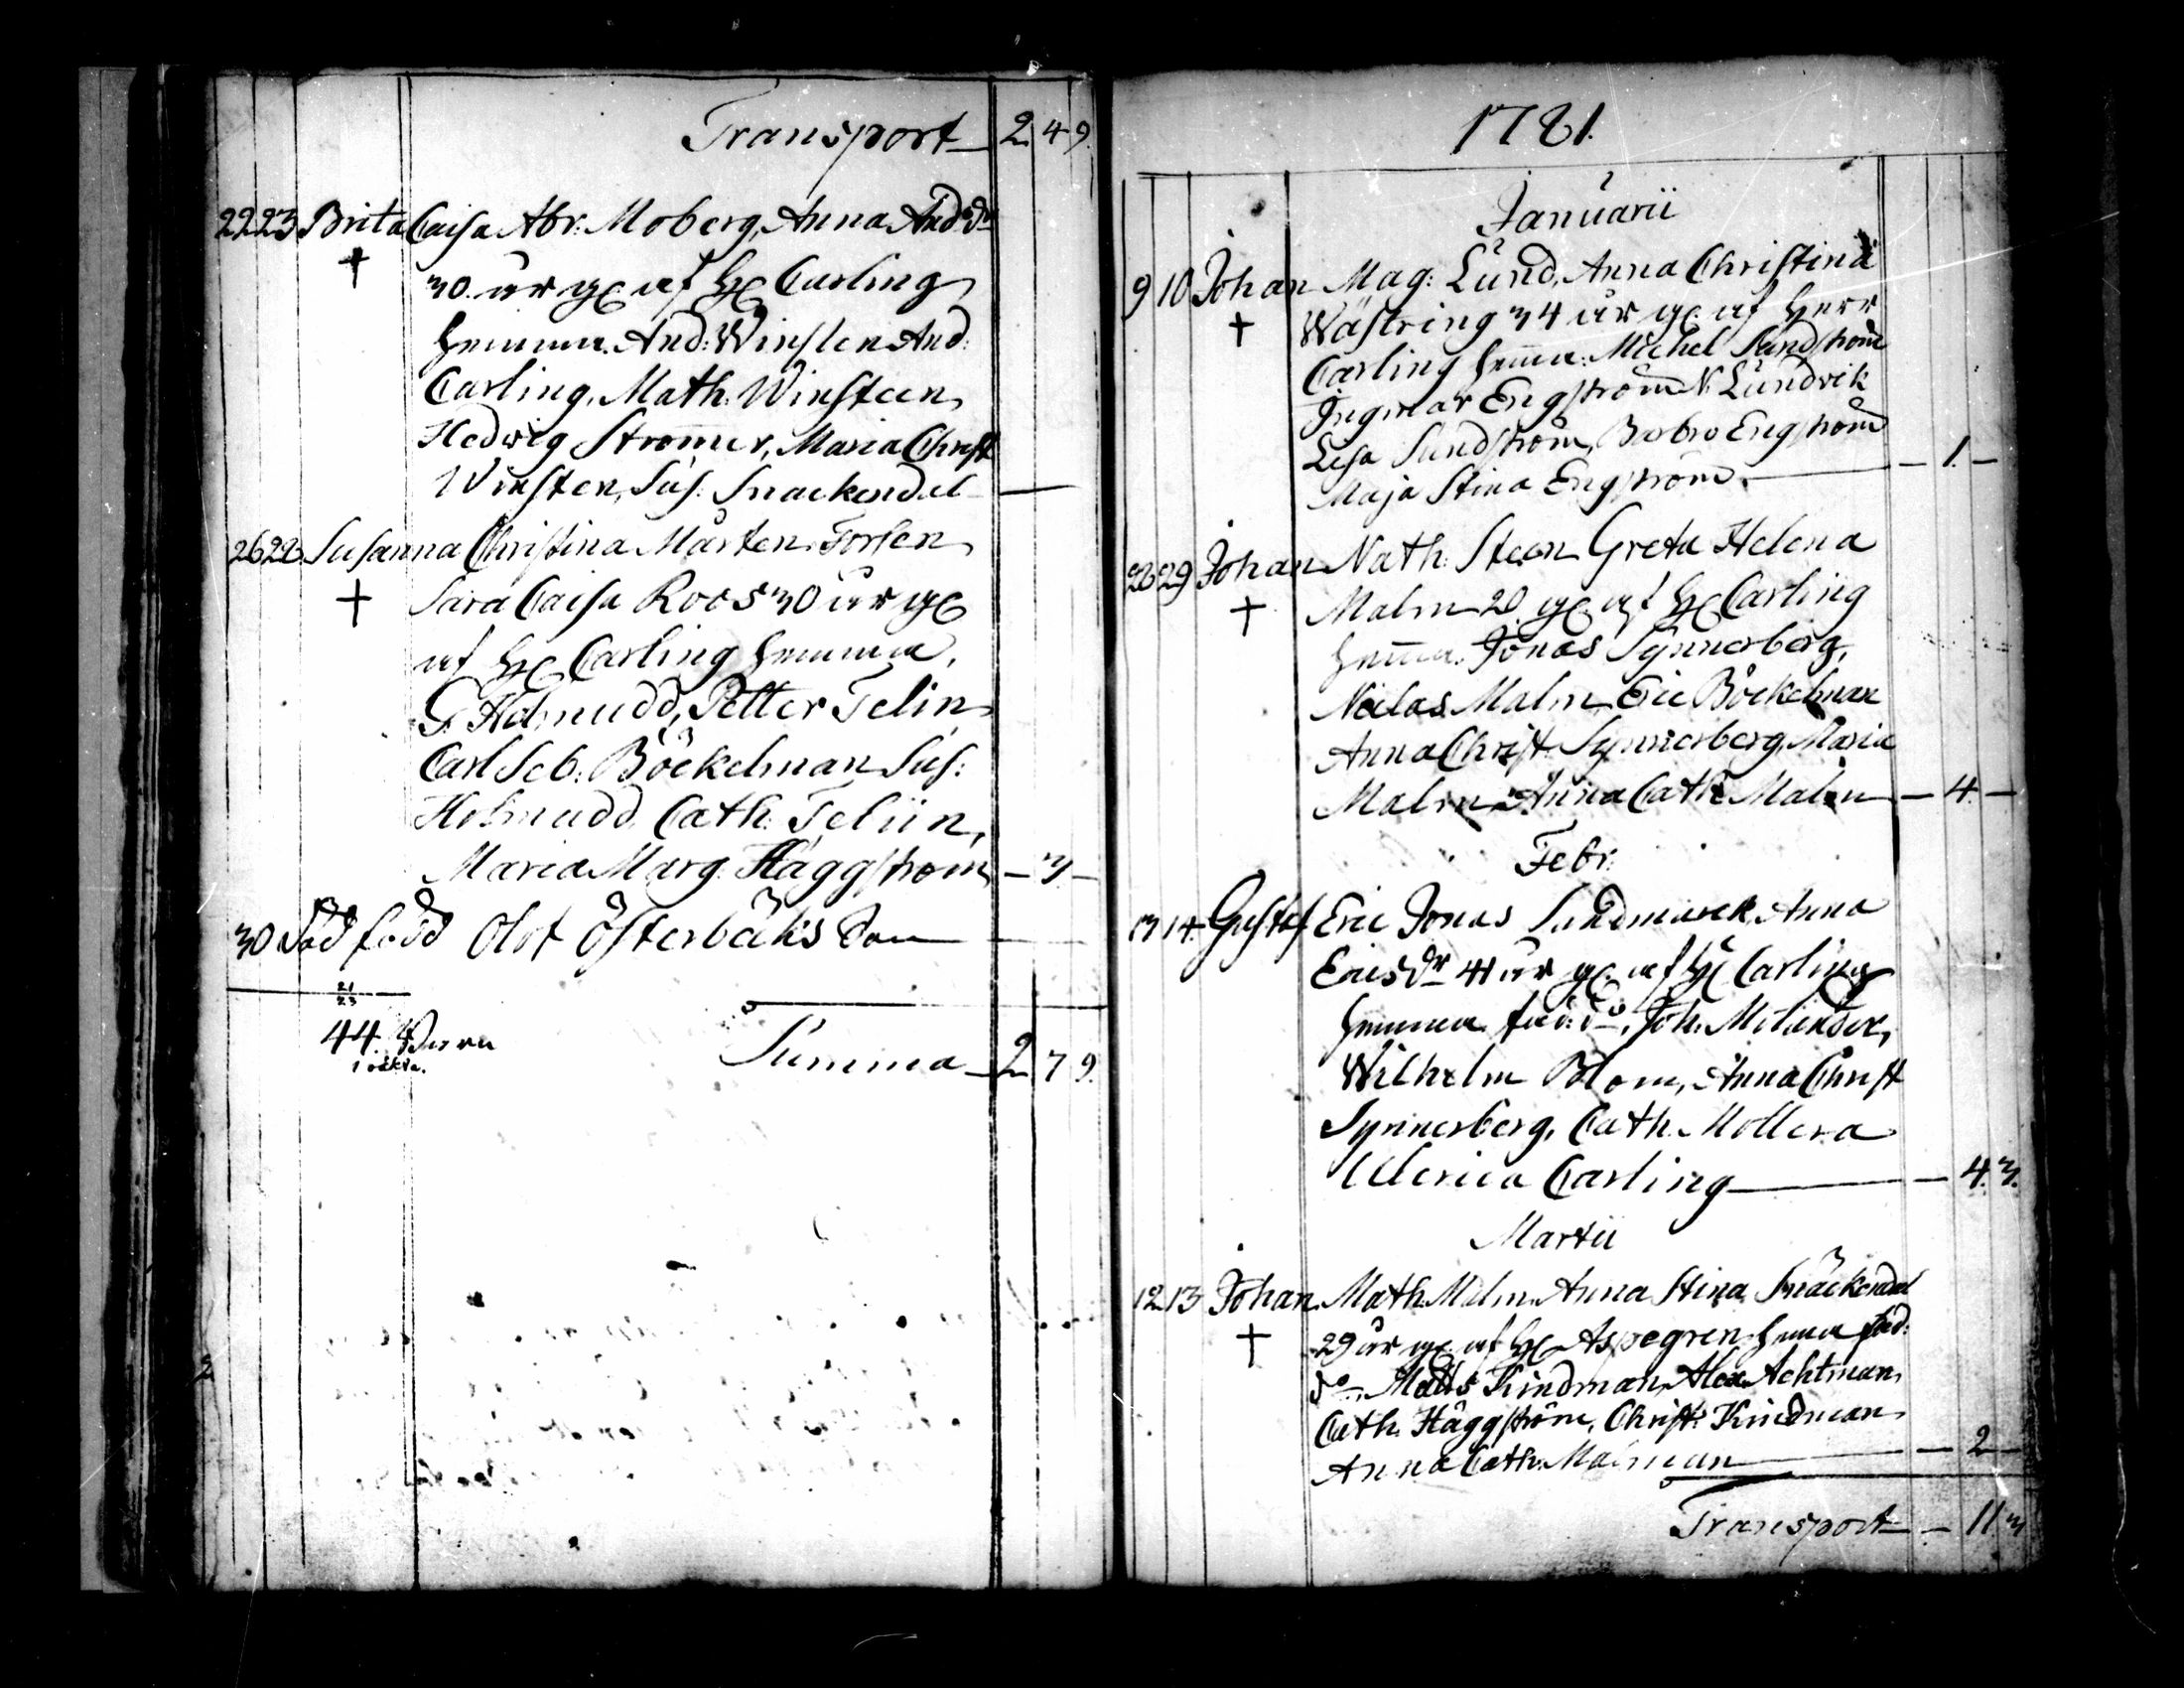 Transport 2 4 9.
22 23 Brita Caisa Abr: Moberg, Anna And:dr
† 30 år gl af H Carling
hemma. And: Winsten And:
Carling, Math. Winsteen,
Hedwig Stromer, Maria Christ
Winsten, Sus: Snackendal —
26 28 Susanna Christina Mårten Forsen
† Sara Caisa Roos 30 år gl
af H Carling hemma,
G. Holmudd, Petter Telin
Carl Seb: Böckelman Sus:
Holmudd Cath: Teliin,
Maria Marg. Häggström — 3 —
30 Död född Olof Österbäks Son —
21
23
44. Barn
1 oäkta.
Summa 2 7 9.
1781.
Januarii
9 10 Johan Mag: Lund, Anna Christina
† Wästring 34 år gl. af Herr
Carling hemma: Michel Sandström
Ingmar Engström N. Lundvik
Lisa Sandström, Barbro Engström
Maja Stina Engström. — 1. —
28 29 Johan Nath: Steen Greta Helena
† Malm 20 gl af H Carling
hemma. Jonas Synnerberg,
Niclas Malm Eric Böckelman
Anna Christ. Synnerberg, Maria
Malm Anna Cath Malm — 4. —
Febr:
13 14. Gustaf Eric Jonas Sandmarck Anna
Ericsdr 41 år gl. af H Carling
hemma fad: do, Joh. Molander,
Wilhelm Blom, Anna Christ
Synnerberg, Cath. Mollera
Ulerica Carling — 4. 3.
Martii
12 13 Johan Math. Malm Anna Stina Snäckendal
† 29 år gl af H Aspegren hemma fad:
do, Matts Kindman, Alex. Achtman,
Cath. Häggström, Christ: Kindman
Anna Cath: Malman — 2 —
Transport — 11 3